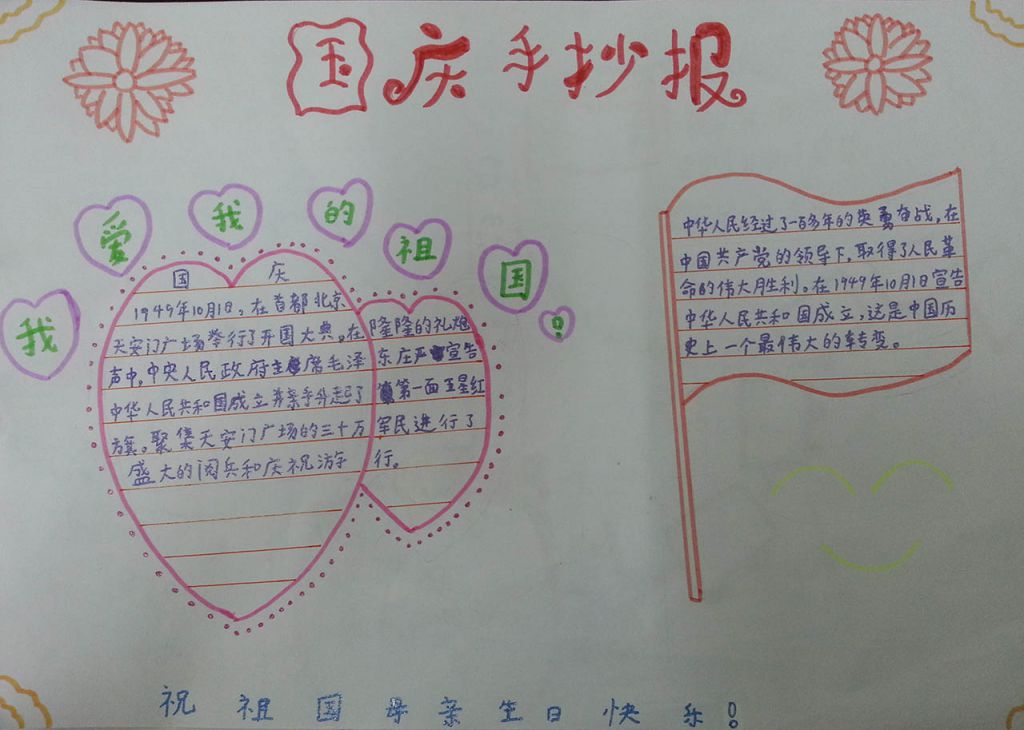 国庆手抄报
我爱我的祖国!
国庆
1949年10月1日,在首都北京
天安门广场举行了开国大典。在隆隆的礼炮
声中,中央人民政府主席毛泽东庄严宣告
中华人民共和国成立并亲手升起了第一面五星红
旗。聚集天安门广场的三十万军民进行了
盛大的阅兵和庆祝游行。
中华人民经过了一百多年的英勇奋战,在
中国共产党的领导下,取得了人民革
命的伟大胜利。在1949年10月1日宣告
中华人民共和国成立,这是中国历
史上一个最伟大的转变。
祝祖国母亲生日快乐!